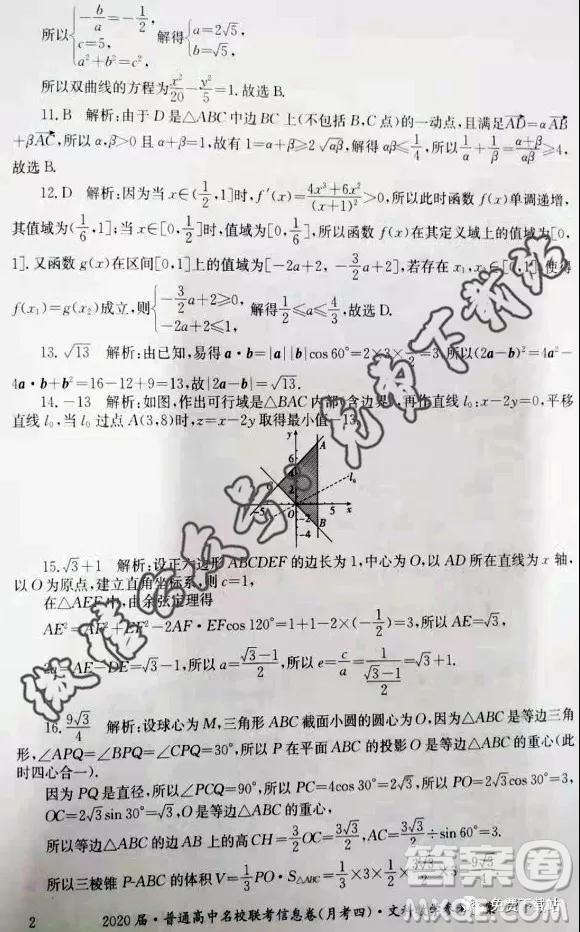 所以{-b/a=-1/2, c=5, a²+b²=c², 解得{a=2√5, b=√5,
所以双曲线的方程为x²/20-y²/5=1.故选B.
11.B 解析:由于D是△ABC中边BC上(不包括B,C点)的一动点,且满足AD=αAB
+βAC,所以α,β>0且α+β=1,故有1=α+β≥2√αβ,解得αβ≤1/4,所以1/α+1/β=(α+β)/αβ≥4,
故选B.
12.D 解析:因为当x∈(1/2,1]时,f′(x)=(4x³+6x²)/(x+1)²>0,所以此时函数f(x)单调递增,
其值域为(1/6,1];当x∈[0,1/2]时,值域为[0,1/6],所以函数f(x)在其定义域上的值域为[0,
1].又函数g(x)在区间[0,1]上的值域为[-2a+2,-3/2a+2],若存在x₁,x₂∈[0,1],使得
f(x₁)=g(x₂)成立,则{-3/2a+2≥0, -2a+2≤1, 解得1/2≤a≤4/3,故选D.
13.√13 解析:由已知,易得a·b=|a||b|cos60°=2×3×1/2=3,所以(2a-b)²=4a²-
4a·b+b²=16-12+9=13,故|2a-b|=√13.
14.-13 解析:如图,作出可行域是△BAC内部(含边界),再作直线l₀:x-2y=0,平移
直线l₀,当l₀过点A(3,8)时,z=x-2y取得最小值-13.
y
A
6
4
2
l₀
-5
O
5
x
-2
-4
B
15.√3+1 解析:设正六边形ABCDEF的边长为1,中心为O,以AD所在直线为x轴,
以O为原点,建立直角坐标系,则c=1,
在△AEF中,由余弦定理得
AE²=AF²+EF²-2AF·EFcos120°=1+1-2×(-1/2)=3,所以AE=√3,
2a=AE-DE=√3-1,所以a=(√3-1)/2,所以e=c/a=1/((√3-1)/2)=√3+1.
16.9√3/4 解析:设球心为M,三角形ABC截面小圆的圆心为O,因为△ABC是等边三角
形,∠APQ=∠BPQ=∠CPQ=30°,所以P在平面ABC的投影O是等边△ABC的重心(此
时四心合一).
因为PQ是直径,所以∠PCQ=90°,所以PC=4cos30°=2√3,所以PO=2√3cos30°=3,
OC=2√3sin30°=√3,O是等边△ABC的重心,
所以等边△ABC的边AB上的高CH=3/2OC=3√3/2,AC=3√3/2÷sin60°=3.
所以三棱锥P-ABC的体积V=1/3PO·S△ABC=1/3×3×1/2×3√3/2×3=9√3/4.
2 2020届·普通高中名校联考信息卷(月考四)·文科
免费下载站
答案圈